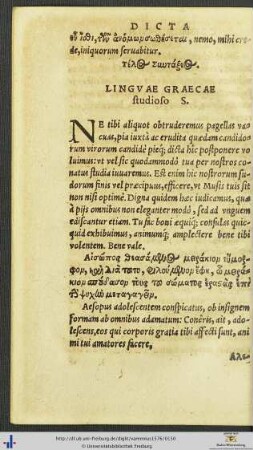 DICTA
nemo, mihi cre-
de, iniquorum seruabitur.
τέλος Συντάξεως.
LINGVAE GRAECAE
studioso S.
NE tibi aliquot obtruderemus pagellas va-
cuas, pia iuxtà ac erudita quædam candido-
rum virorum candidè pieq́; dicta hîc postponere vo
luimus: vt vel sic quodammodò tua per nostros co-
natus studia iuuaremus. Est enim hic nostrorum su-
dorum finis vel præcipuus, efficere, vt Musis tuis sit
non nisi optimè. Digna quidem hæc iudicamus, quæ
à pijs omnibus non eleganter modò, sed ad vnguem
ediscantur etiam. Tu fac boni æquiq́; consulas quic-
quid exhibuimus, animumq́; amplectere bene tibi
volentem. Bene vale.
Αἴσωπος μειράκιον
Aesopus adolescentem conspicatus, ob insignem
formam ab omnibus adamatum: Coneris, ait, ado-
lescens, eos qui corporis gratia tibi affecti sunt, ani
mi tui amatores facere,
http://dl.ub.uni-freiburg.de/diglit/varennius1576/0130
© Universitätsbibliothek Freiburg